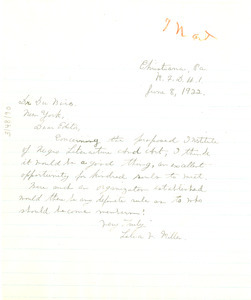 Christiana, Pa
R.F.D. #1
June 8, 1922.
Dr Du Bois,
New York,
Dear Editor,
Concerning the proposed Institute
of Negro Literature and Art, I think
it would be a good thing, an excellent
opportunity for kindred souls to meet.
Were such an organization established
would there be any definite rule as to who
should become members?
Yours Truly,